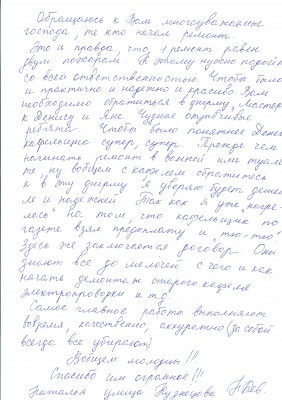 Обращаюсь к Вам многоуважаемые
господа, те кто начал ремонт.
Это и правда, что 1 ремонт равен
двум пожарам. К этому нужно подойти
со всей ответственностью. Чтобы было
и практично и надежно и красиво Вам
необходимо обратиться в фирму, Мастер
к Денису и Яне. Чудные отзывчивые
ребята. Чтобы было понятнее Денис
кафельщик супер, супер. Прежде чем
начинать ремонт в ванной или туале
те, ну вобщем с кафелем обратитесь
к в эту фирму. Я уверяю будет дешев
ле и надежней. Так как я уже "нагре-
лась" на том, что "кафельщик" по
газете взял предоплату и "тю-тю"
Здесь же заключается договор. Они
знают все до мелочей с чего и как
начать демонтаж старого кафеля
электропроводки и т.д.
Самое главное работа выполняют
вовремя, качественно, аккуратно (за собой
всегда все убирают)
Вобщем молодцы!!!
Спасибо им огромное!!!
Наталья улица Кузнецова